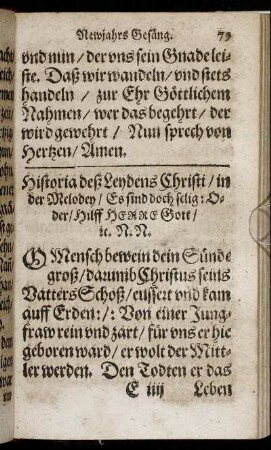 Newjahrs Gesäng. 79
vnd nun / der vns sein Gnade lei-
ste. Daß wir wandeln / vnd stets
handeln / zur Ehr Göttlichem
Nahmen / wer das begehrt / der
wird gewehrt / Nun sprech von
Hertzen / Amen.
Historia deß Leydens Christi / in
der Melodey / Es sind doch selig: O-
der / Hilff HERRE Gott /
ꝛc. N. N.
O Mensch bewein dein Sünde
groß / darumb Christus seins
Vatters Schoß / eussert vnd kam
auff Erden :/: Von einer Jung-
fraw rein vnd zart / für vns er hie
geboren ward / er wolt der Mitt-
ler werden. Den Todten er das
E iiij Leben